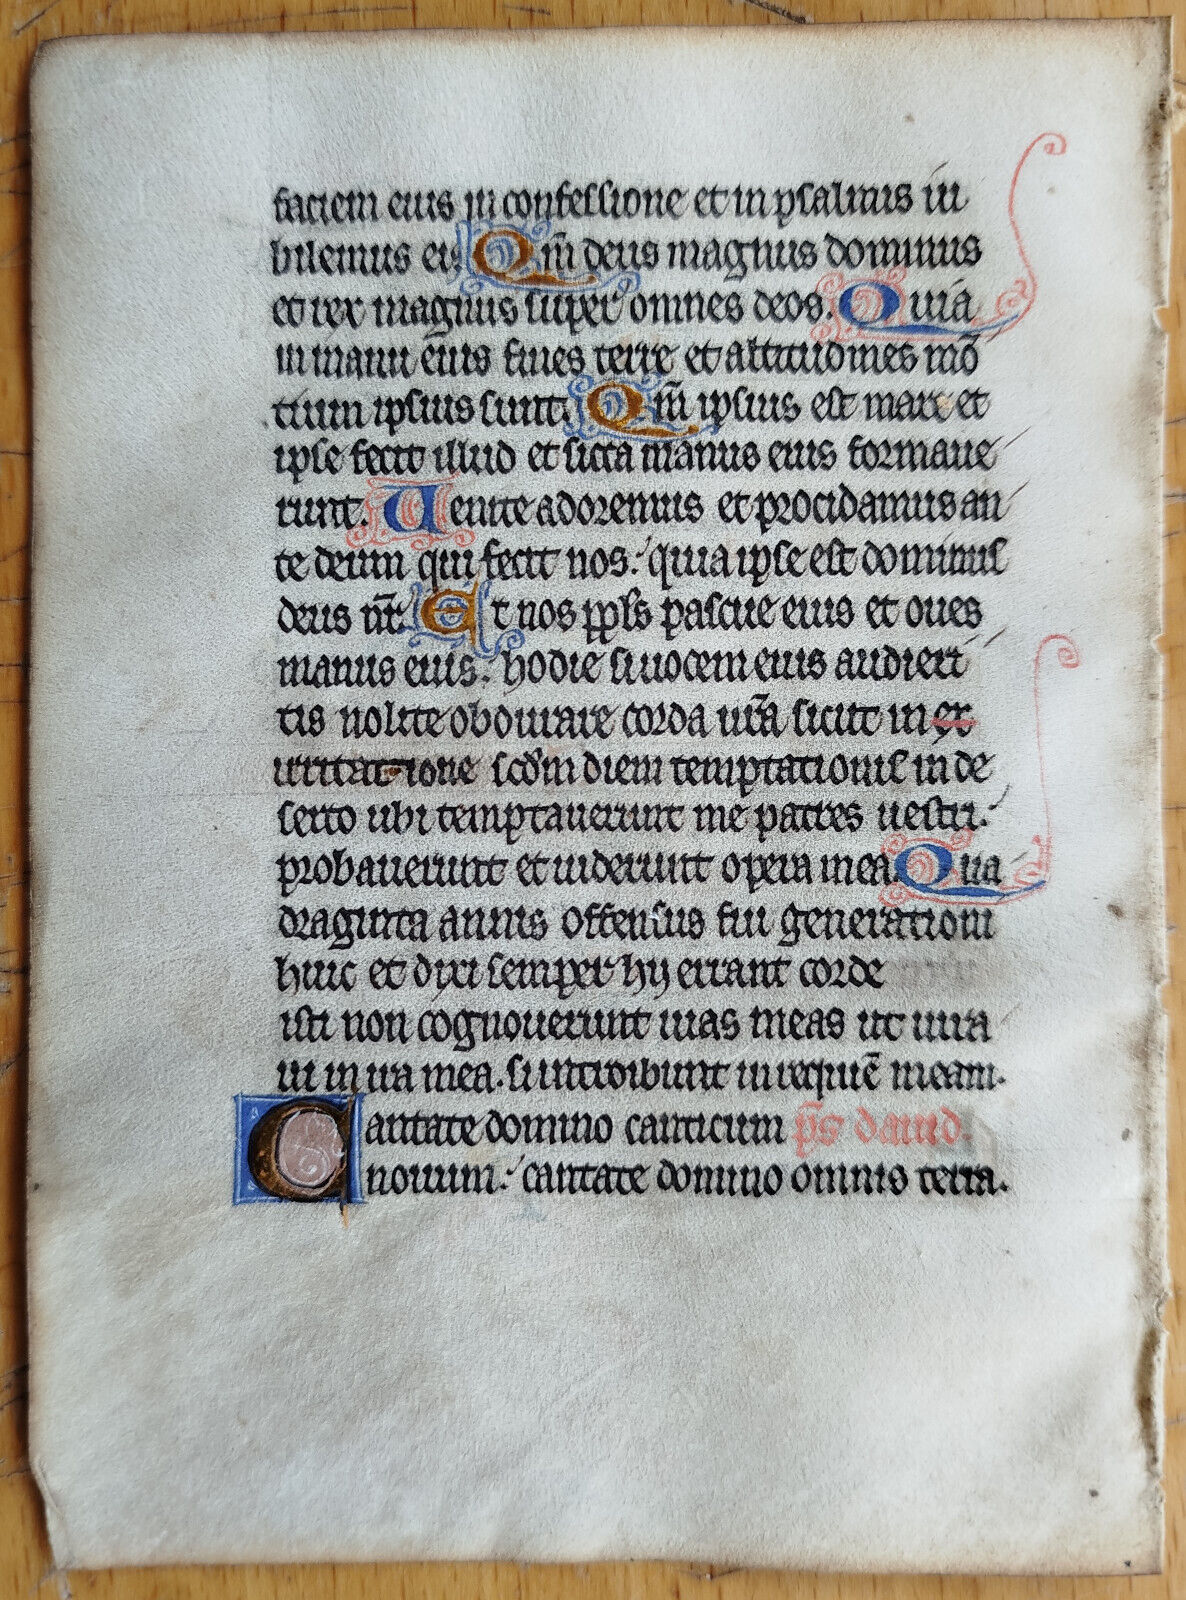 faciem eius in confessione et in psalmis iu
bilemus ei. Qm̄ deus magnus dominus
et rex magnus super omnes deos. Quia
in manu eius fines terre et altitudines mō
tium ipsius sunt. Qm̄ ipsius est mare et
ipse fecit illud et sicca manus eius formaue
runt. Uenite adoremus et procidamus an
te deum qui fecit nos: quia ipse est dominus
deus nr̄. Et nos ppls pascue eius et oues
manus eius: hodie si uocem eius audieri
tis nolite obdurare corda ur̄a sicut in ex
irritatione scd̄m diem temptationis in de
serto ubi temptauerunt me patres uestri:
probauerunt et uiderunt opera mea. Qua
draginta annis offensus fui generationi
huic et dixi semper hij errant corde
isti non cognouerunt uias meas ut iura
ui in ira mea. si introibunt in requiē meam.
Cantate domino canticum p̄s dauid.
nouum: cantate domino omnis terra.